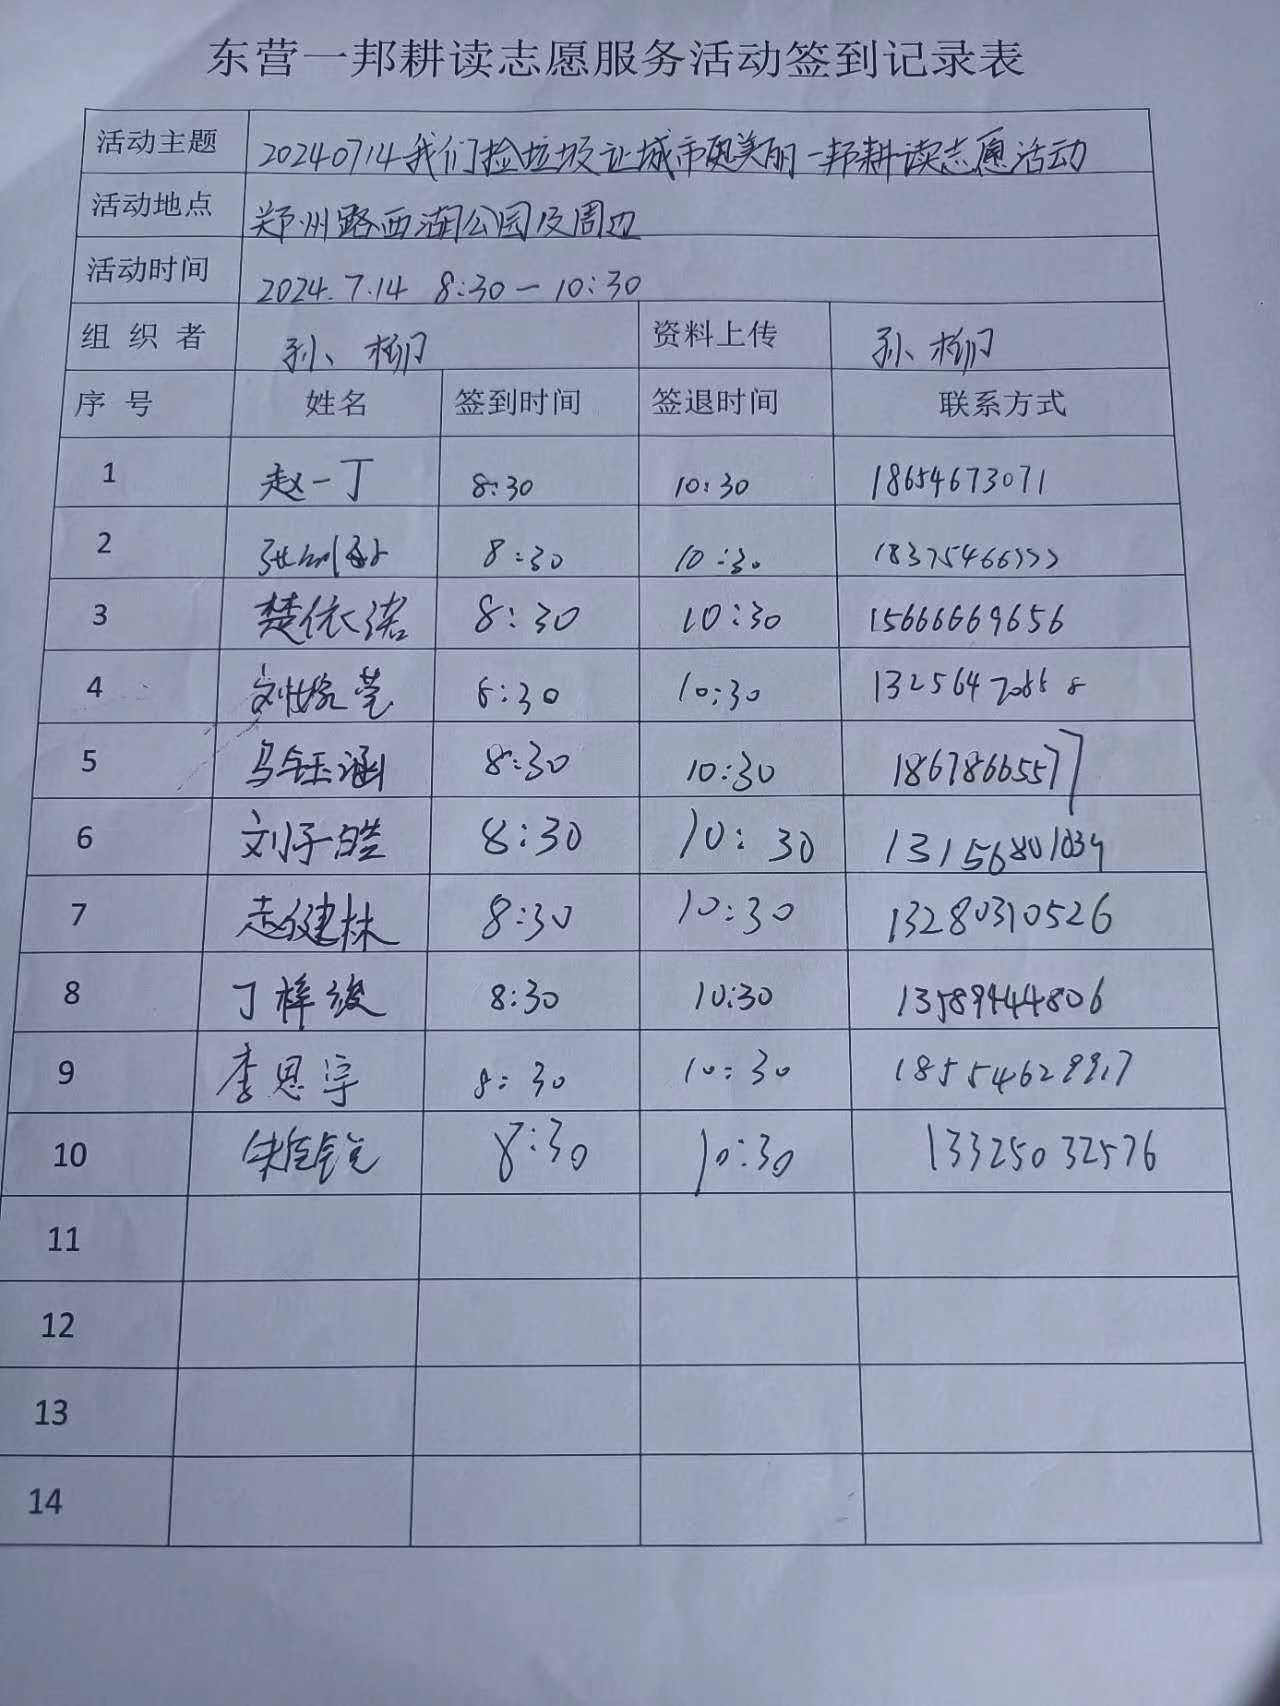 东营一邦耕读志愿服务活动签到记录表
活动主题 20240714我们捡垃圾让城市更美丽一邦耕读志愿活动
活动地点 郑州路西湖公园及周边
活动时间 2024.7.14 8:30—10:30
组织者 孙、杨 资料上传 孙、杨
序号 姓名 签到时间 签退时间 联系方式
1 赵一丁 8:30 10:30 18654673071
2 8:30 10:30
3 楚依诺 8:30 10:30 15666669656
4 刘嫁莹 8:30 10:30
5 马钰涵 8:30 10:30 18678665577
6 刘子皓 8:30 10:30 13156801034
7 赵健林 8:30 10:30 13280310526
8 丁梓峻 8:30 10:30 13589444806
9 李思宇 8:30 10:30
10 8:30 10:30 13325032576
11
12
13
14